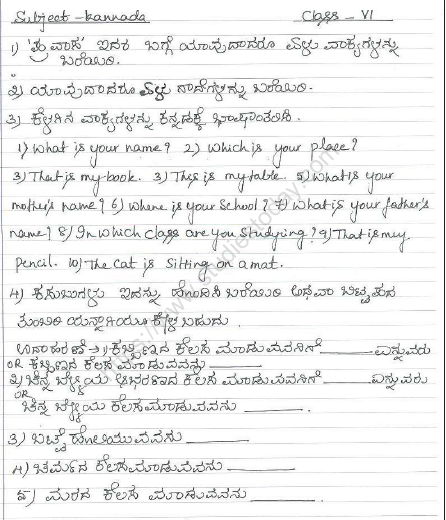 Subject - kannada Class - VI
1) 'ಪ್ರವಾಸ' ಇದರ ಬಗ್ಗೆ ಯಾವುದಾದರೂ ಏಳು ವಾಕ್ಯಗಳನ್ನು
ಬರೆಯಿರಿ.
2) ಯಾವುದಾದರೂ ಏಳು ಗಾದೆಗಳನ್ನು ಬರೆಯಿರಿ.
3) ಕೆಳಗಿನ ವಾಕ್ಯಗಳನ್ನು ಕನ್ನಡಕ್ಕೆ ಭಾಷಾಂತರಿಸಿ.
1) What is your name? 2) Which is your place?
3) That is my book. 3) This is my table. 5) What is your
mother's name? 6) Where is your School? 7) What is your father's
name? 8) In which class are you studying? 9) That is my
pencil. 10) The cat is sitting on a mat.
4) ಕಸುಬುಗಳು ಇದನ್ನು ಹೊಂದಿಸಿ ಬರೆಯಿರಿ ಅಥವಾ ಬಿಟ್ಟ ಪದ
ತುಂಬಿರಿ ಯನ್ನಾಗಿಯೂ ಕೇಳ ಬಹುದು.
ಉದಾಹರಣೆ → 1) ಕಬ್ಬಿಣದ ಕೆಲಸ ಮಾಡುವವನಿಗೆ ________ ಎನ್ನುವರು
OR ಕಬ್ಬಿಣದ ಕೆಲಸ ಮಾಡುವವನು ________
2) ಚಿನ್ನ ಬೆಳ್ಳಿಯ ಆಭರಣದ ಕೆಲಸ ಮಾಡುವವನಿಗೆ ________ ಎನ್ನುವರು
OR
ಚಿನ್ನ ಬೆಳ್ಳಿಯ ಕೆಲಸ ಮಾಡುವವನು ________ .
3) ಬಟ್ಟೆ ಹೊಲಿಯುವವನು ________
4) ಚರ್ಮದ ಕೆಲಸ ಮಾಡುವವನು ________
5) ಮರದ ಕೆಲಸ ಮಾಡುವವನು ________ .
https://www.studiestoday.com